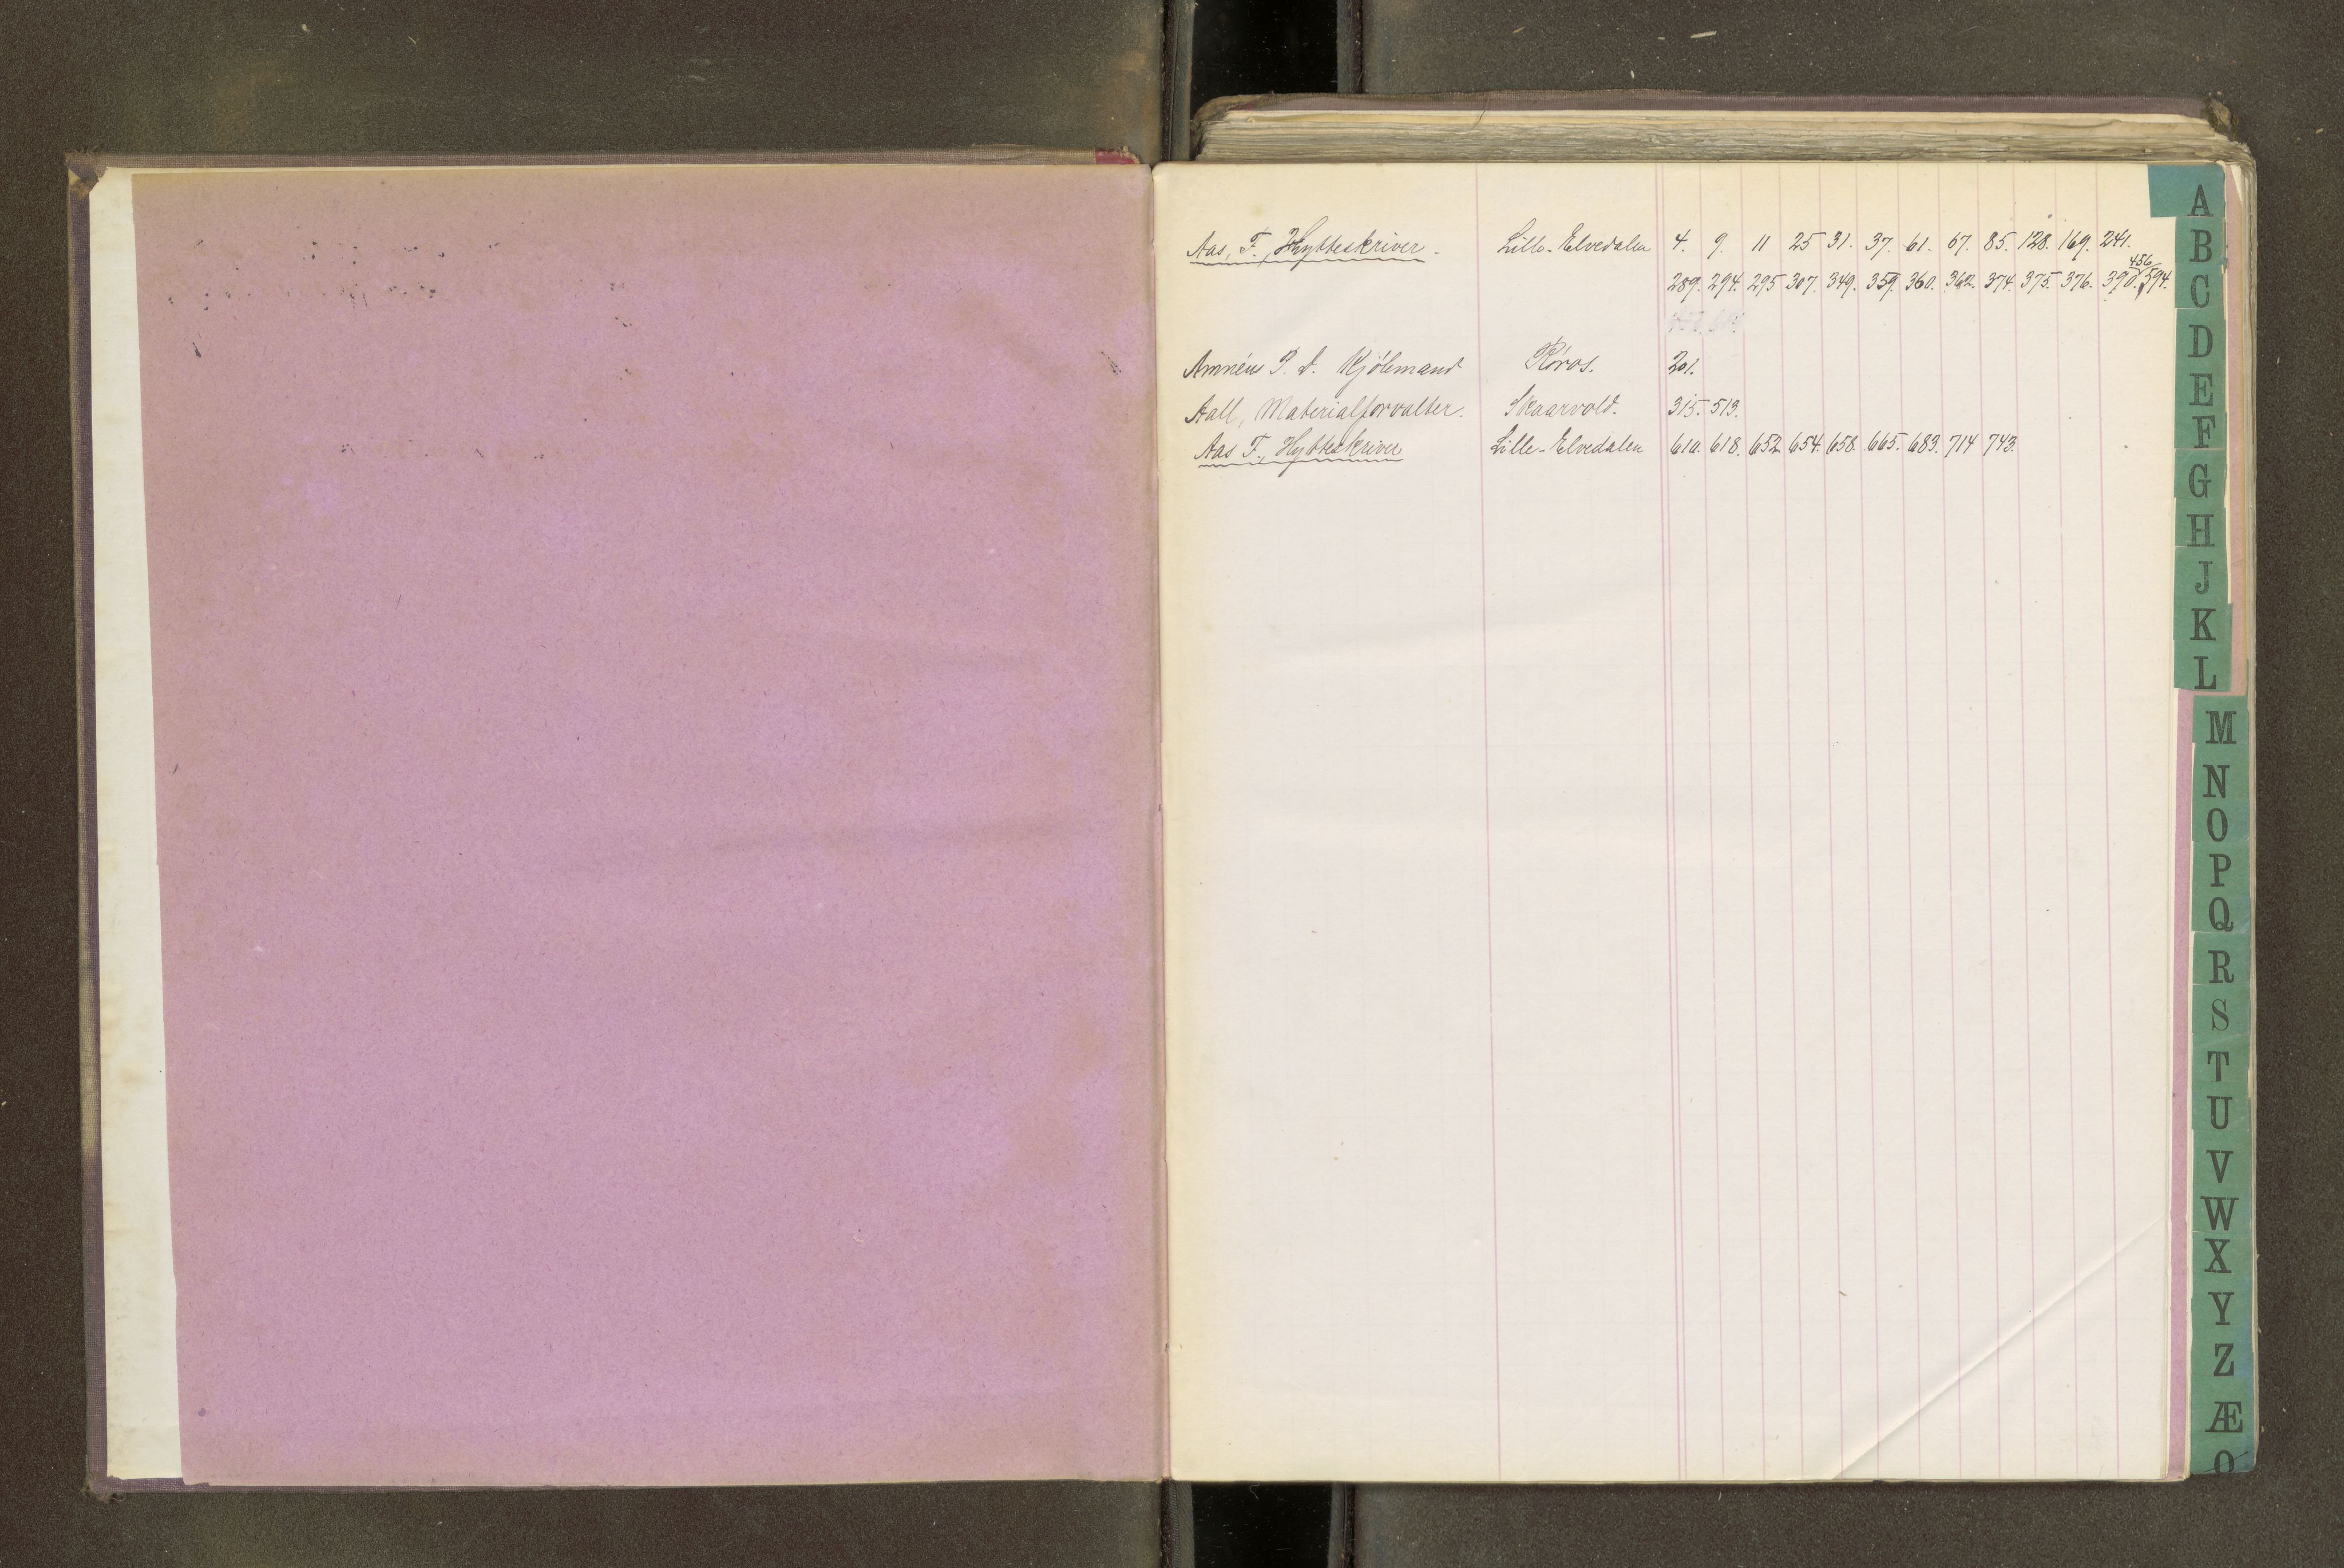 Aas, F., Hytteskriver. Lille-Elvedalen 4. 9. 11 25 31. 37. 61. 67. 85. 128. 169. 241.
456
289. 294. 295 307. 349. 359. 360. 362. 374. 375. 376. 390. 594.
Amnéus P. A. Kjöbmand Röros. 201.
Aall, Materialforvalter. Skaarvold. 315. 513.
Aas F., Hytteskriver Lille-Elvedalen 610. 618. 652 654. 658. 665. 683. 714 743.
A
B
C
D
E
F
G
H
J
K
L
M
N
O
P
Q
R
S
T
U
V
W
X
Y
Z
Æ
Ø